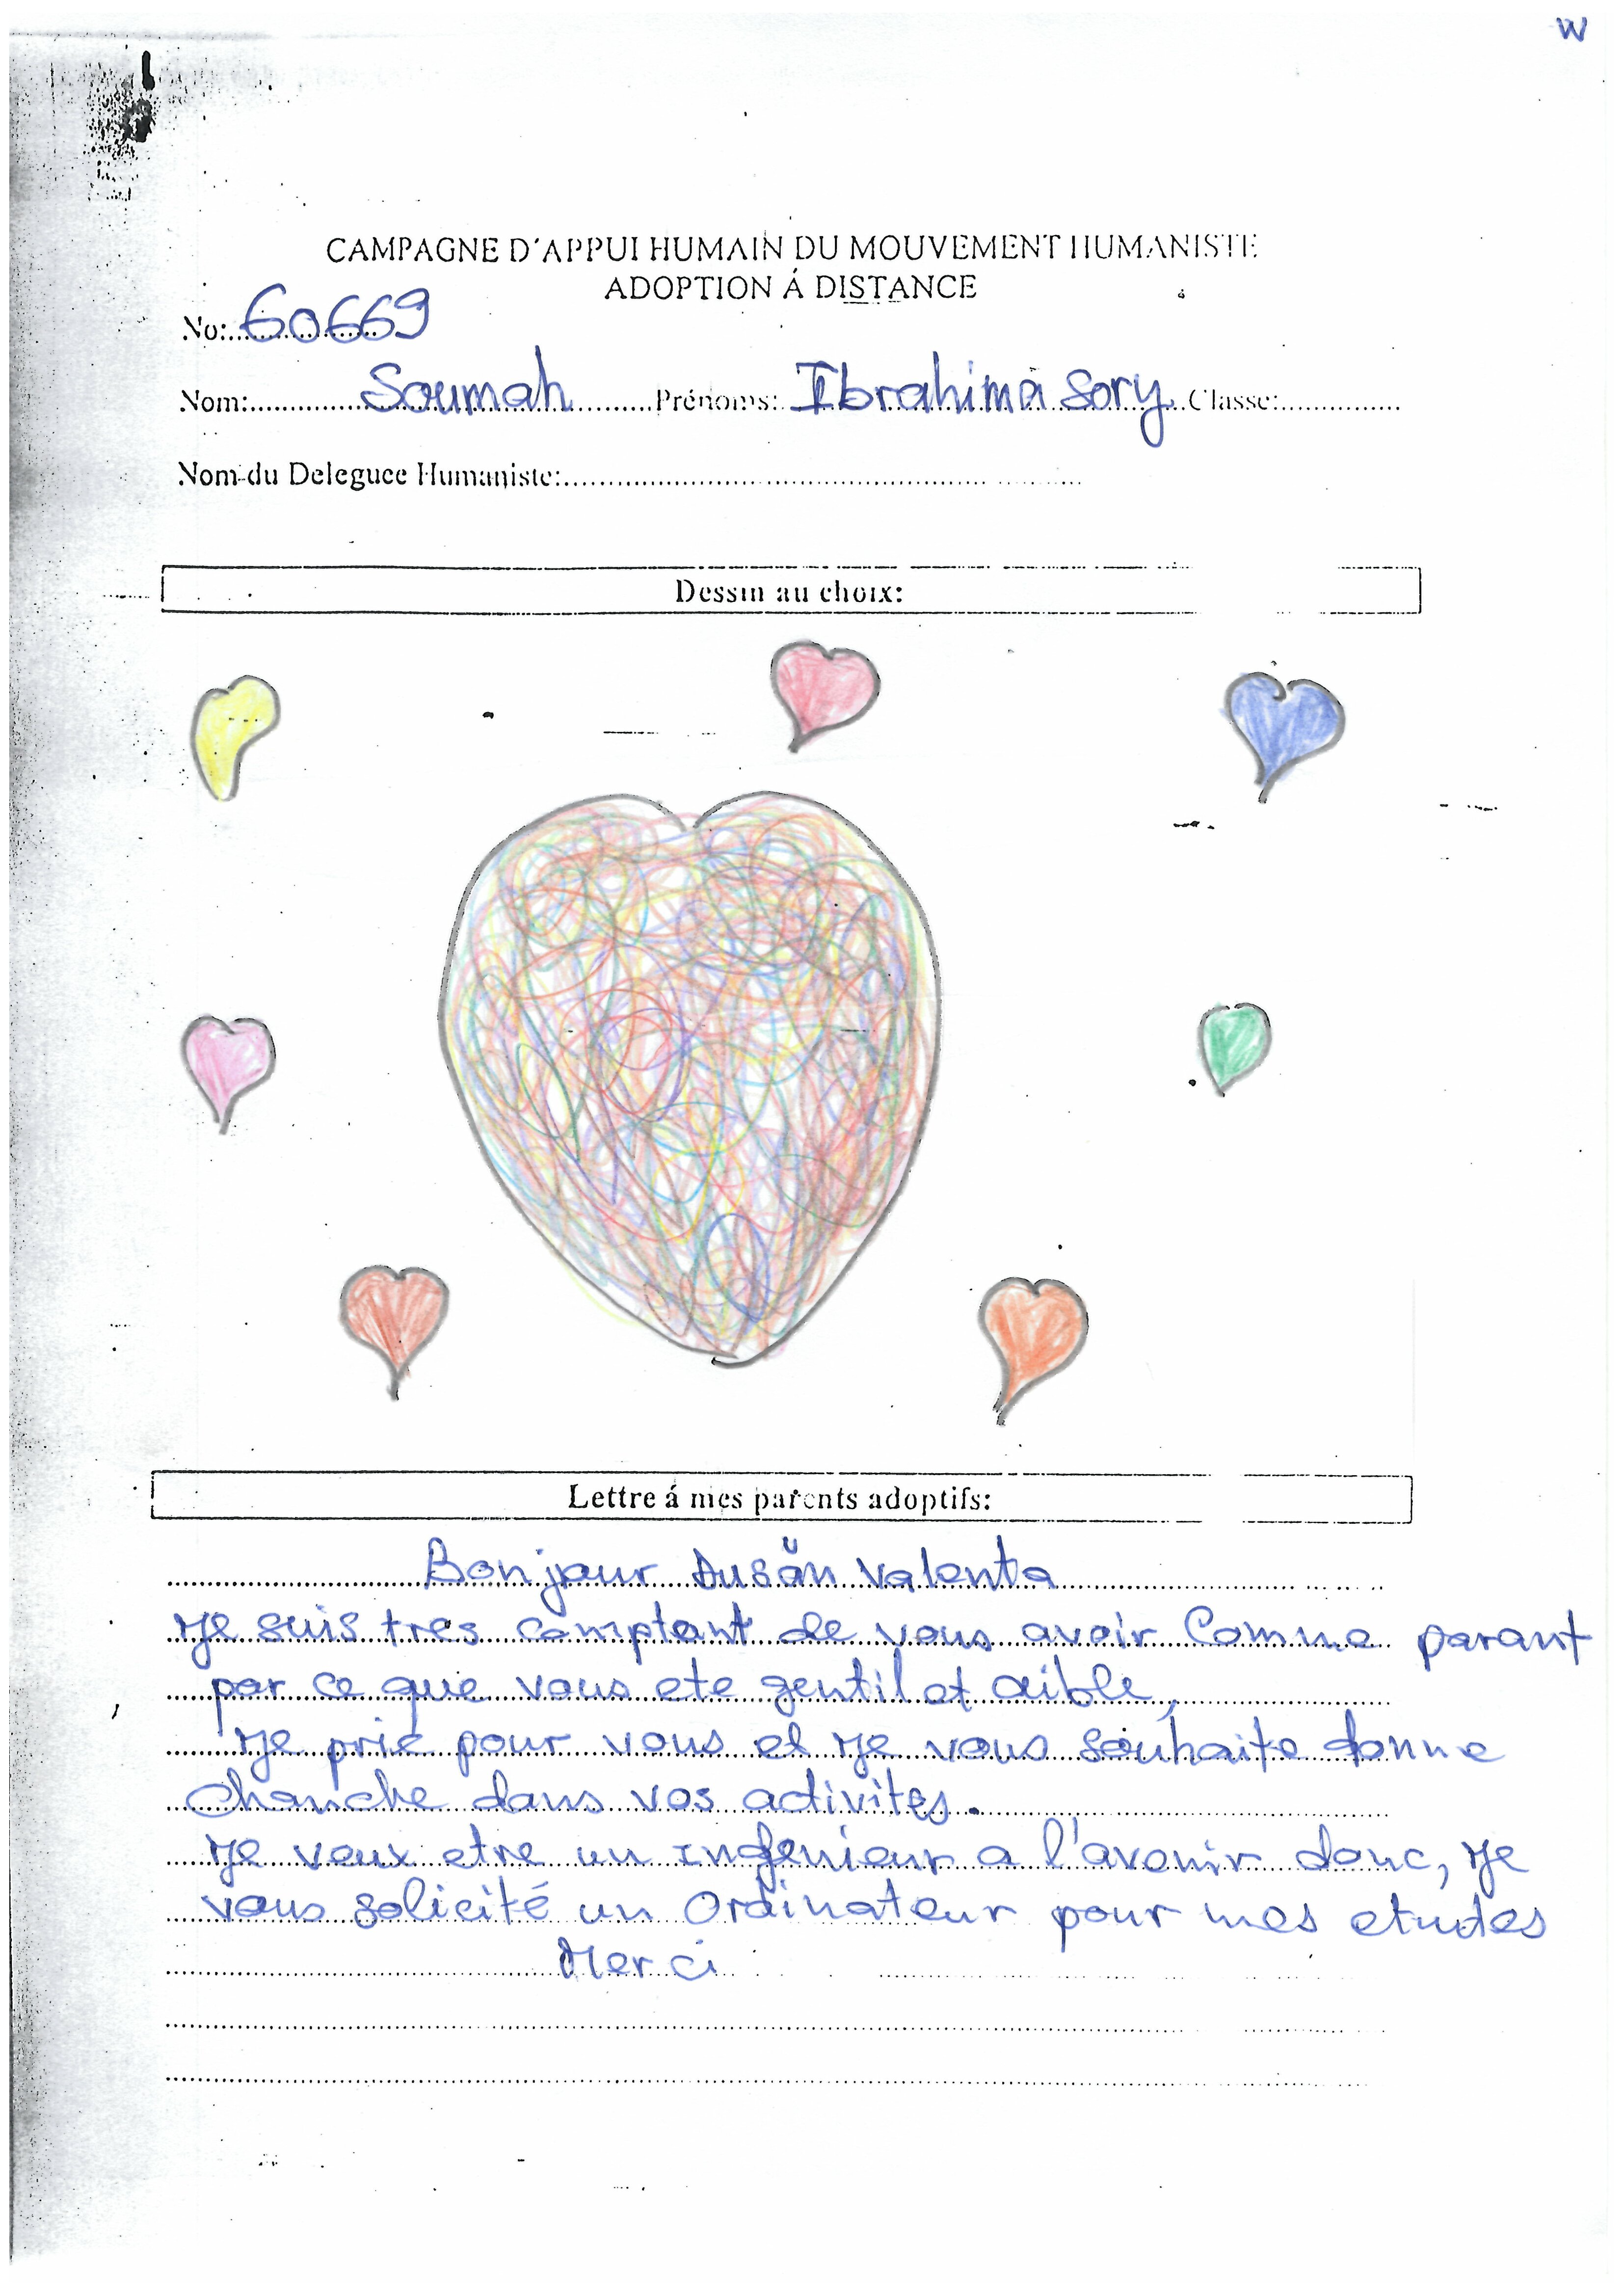 W
CAMPAGNE D'APPUI HUMAIN DU MOUVEMENT HUMANISTE
ADOPTION Á DISTANCE
No: 60669
Nom: Soumah Prénoms: Ibrahima Sory Classe:
Nom du Deleguee Humaniste:
Dessin au choix:
Lettre á mes parents adoptifs:
Bonjour Dusăn Valenta
Je suis tres comptant de vous avoir Comme parant
par ce que vous ete gentil et aible,
Je prie pour vous et je vous souhaite bonne
chanche dans vos activites.
Je veux etre un Ingenieur a l'avenir donc, je
vous solicité un Ordinateur pour mes etudes
Merci